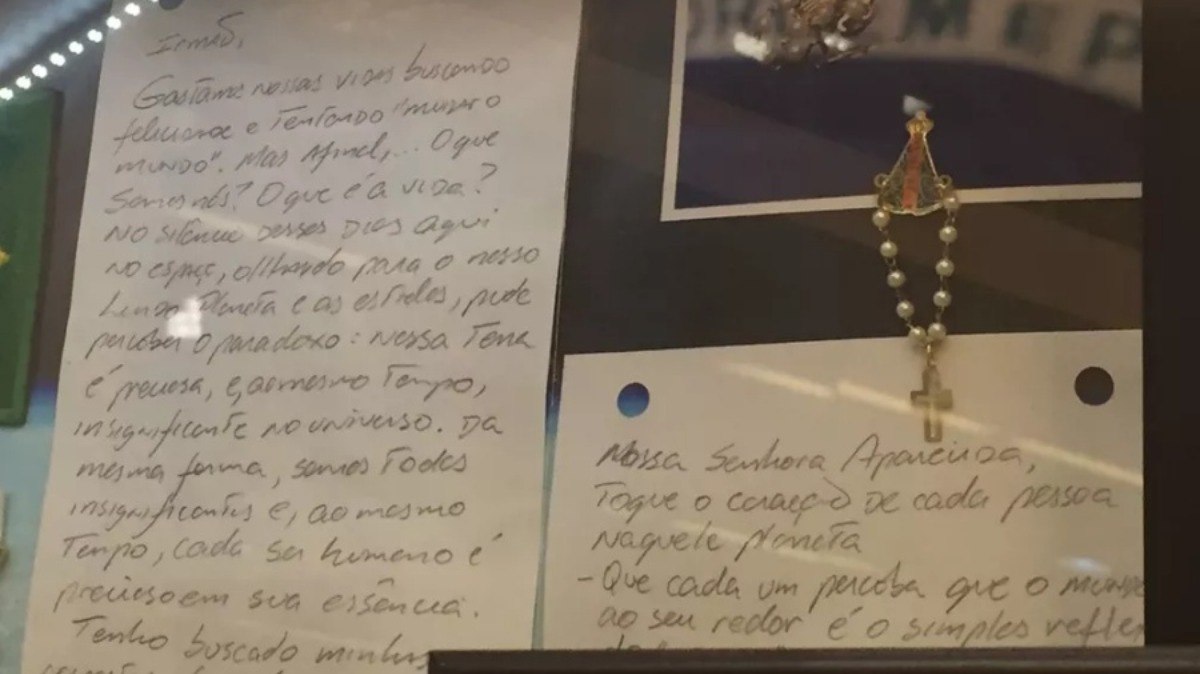 Irmão,
Gastamos nossas vidas buscando
felicidade e tentando "mudar o
mundo". Mas afinal,... O que
somos nós? O que é a vida?
No silêncio desses dias aqui
no espaço, olhando para o nosso
lindo planeta e as estrelas, pude
perceber o paradoxo: nossa Terra
é preciosa, e, ao mesmo tempo,
insignificante no universo. Da
mesma forma, somos todos
insignificantes e, ao mesmo
tempo, cada ser humano é
precioso em sua essência.
Tenho buscado minhas
Nossa Senhora Aparecida,
Toque o coração de cada pessoa
naquele planeta
- Que cada um perceba que o mundo
ao seu redor é o simples reflexo